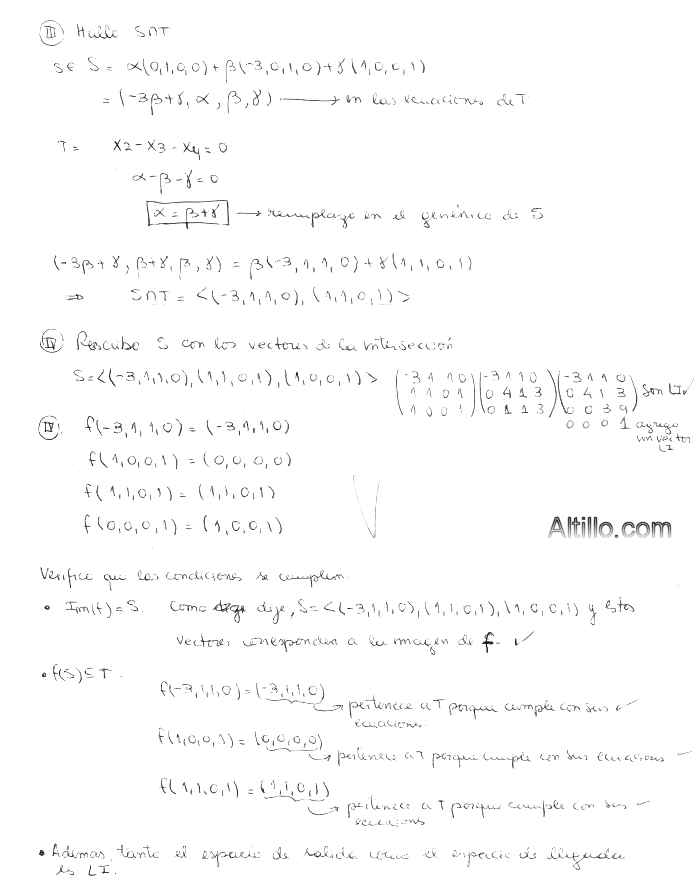 III Hallo S∩T
S∈ S = α(0,1,0,0) + β(-3,0,1,0) + γ(1,0,0,1)
= (-3β+γ, α, β, γ) → en las ecuaciones de T
T = X2 - X3 - X4 = 0
α - β - γ = 0
α = β + γ → reemplazo en el genérico de S
(-3β+γ, β+γ, β, γ) = β(-3,1,1,0) + γ(1,1,0,1)
⇒ S∩T = <(-3,1,1,0), (1,1,0,1)>
IV Rescribo S con los vectores de la intersección
S = <(-3,1,1,0), (1,1,0,1), (1,0,0,1)> (-3 1 1 0 (-3 1 1 0 (-3 1 1 0 Son LI✓
1 1 0 1 0 4 1 3 0 4 1 3
1 0 0 1) 0 1 1 3) 0 0 3 9)
0 0 0 1 agrego un vector LI
IV. f(-3,1,1,0) = (-3,1,1,0)
f(1,0,0,1) = (0,0,0,0)
f(1,1,0,1) = (1,1,0,1)
f(0,0,0,1) = (1,0,0,1)
Altillo.com
Verifico que las condiciones se cumplen.
• Im(f) = S. Como dije, S = <(-3,1,1,0), (1,1,0,1), (1,0,0,1) y estos
vectores corresponden a la imagen de f. ✓
• f(S) ⊆ T.
f(-3,1,1,0) = (-3,1,1,0)
→ pertenece a T porque cumple con sus ✓
ecuaciones.
f(1,0,0,1) = (0,0,0,0)
→ pertenece a T porque cumple con sus ecuaciones
f(1,1,0,1) = (1,1,0,1)
→ pertenece a T porque cumple con sus
ecuaciones
• Ademas, tanto el espacio de salida como el espacio de llegada
es LI.